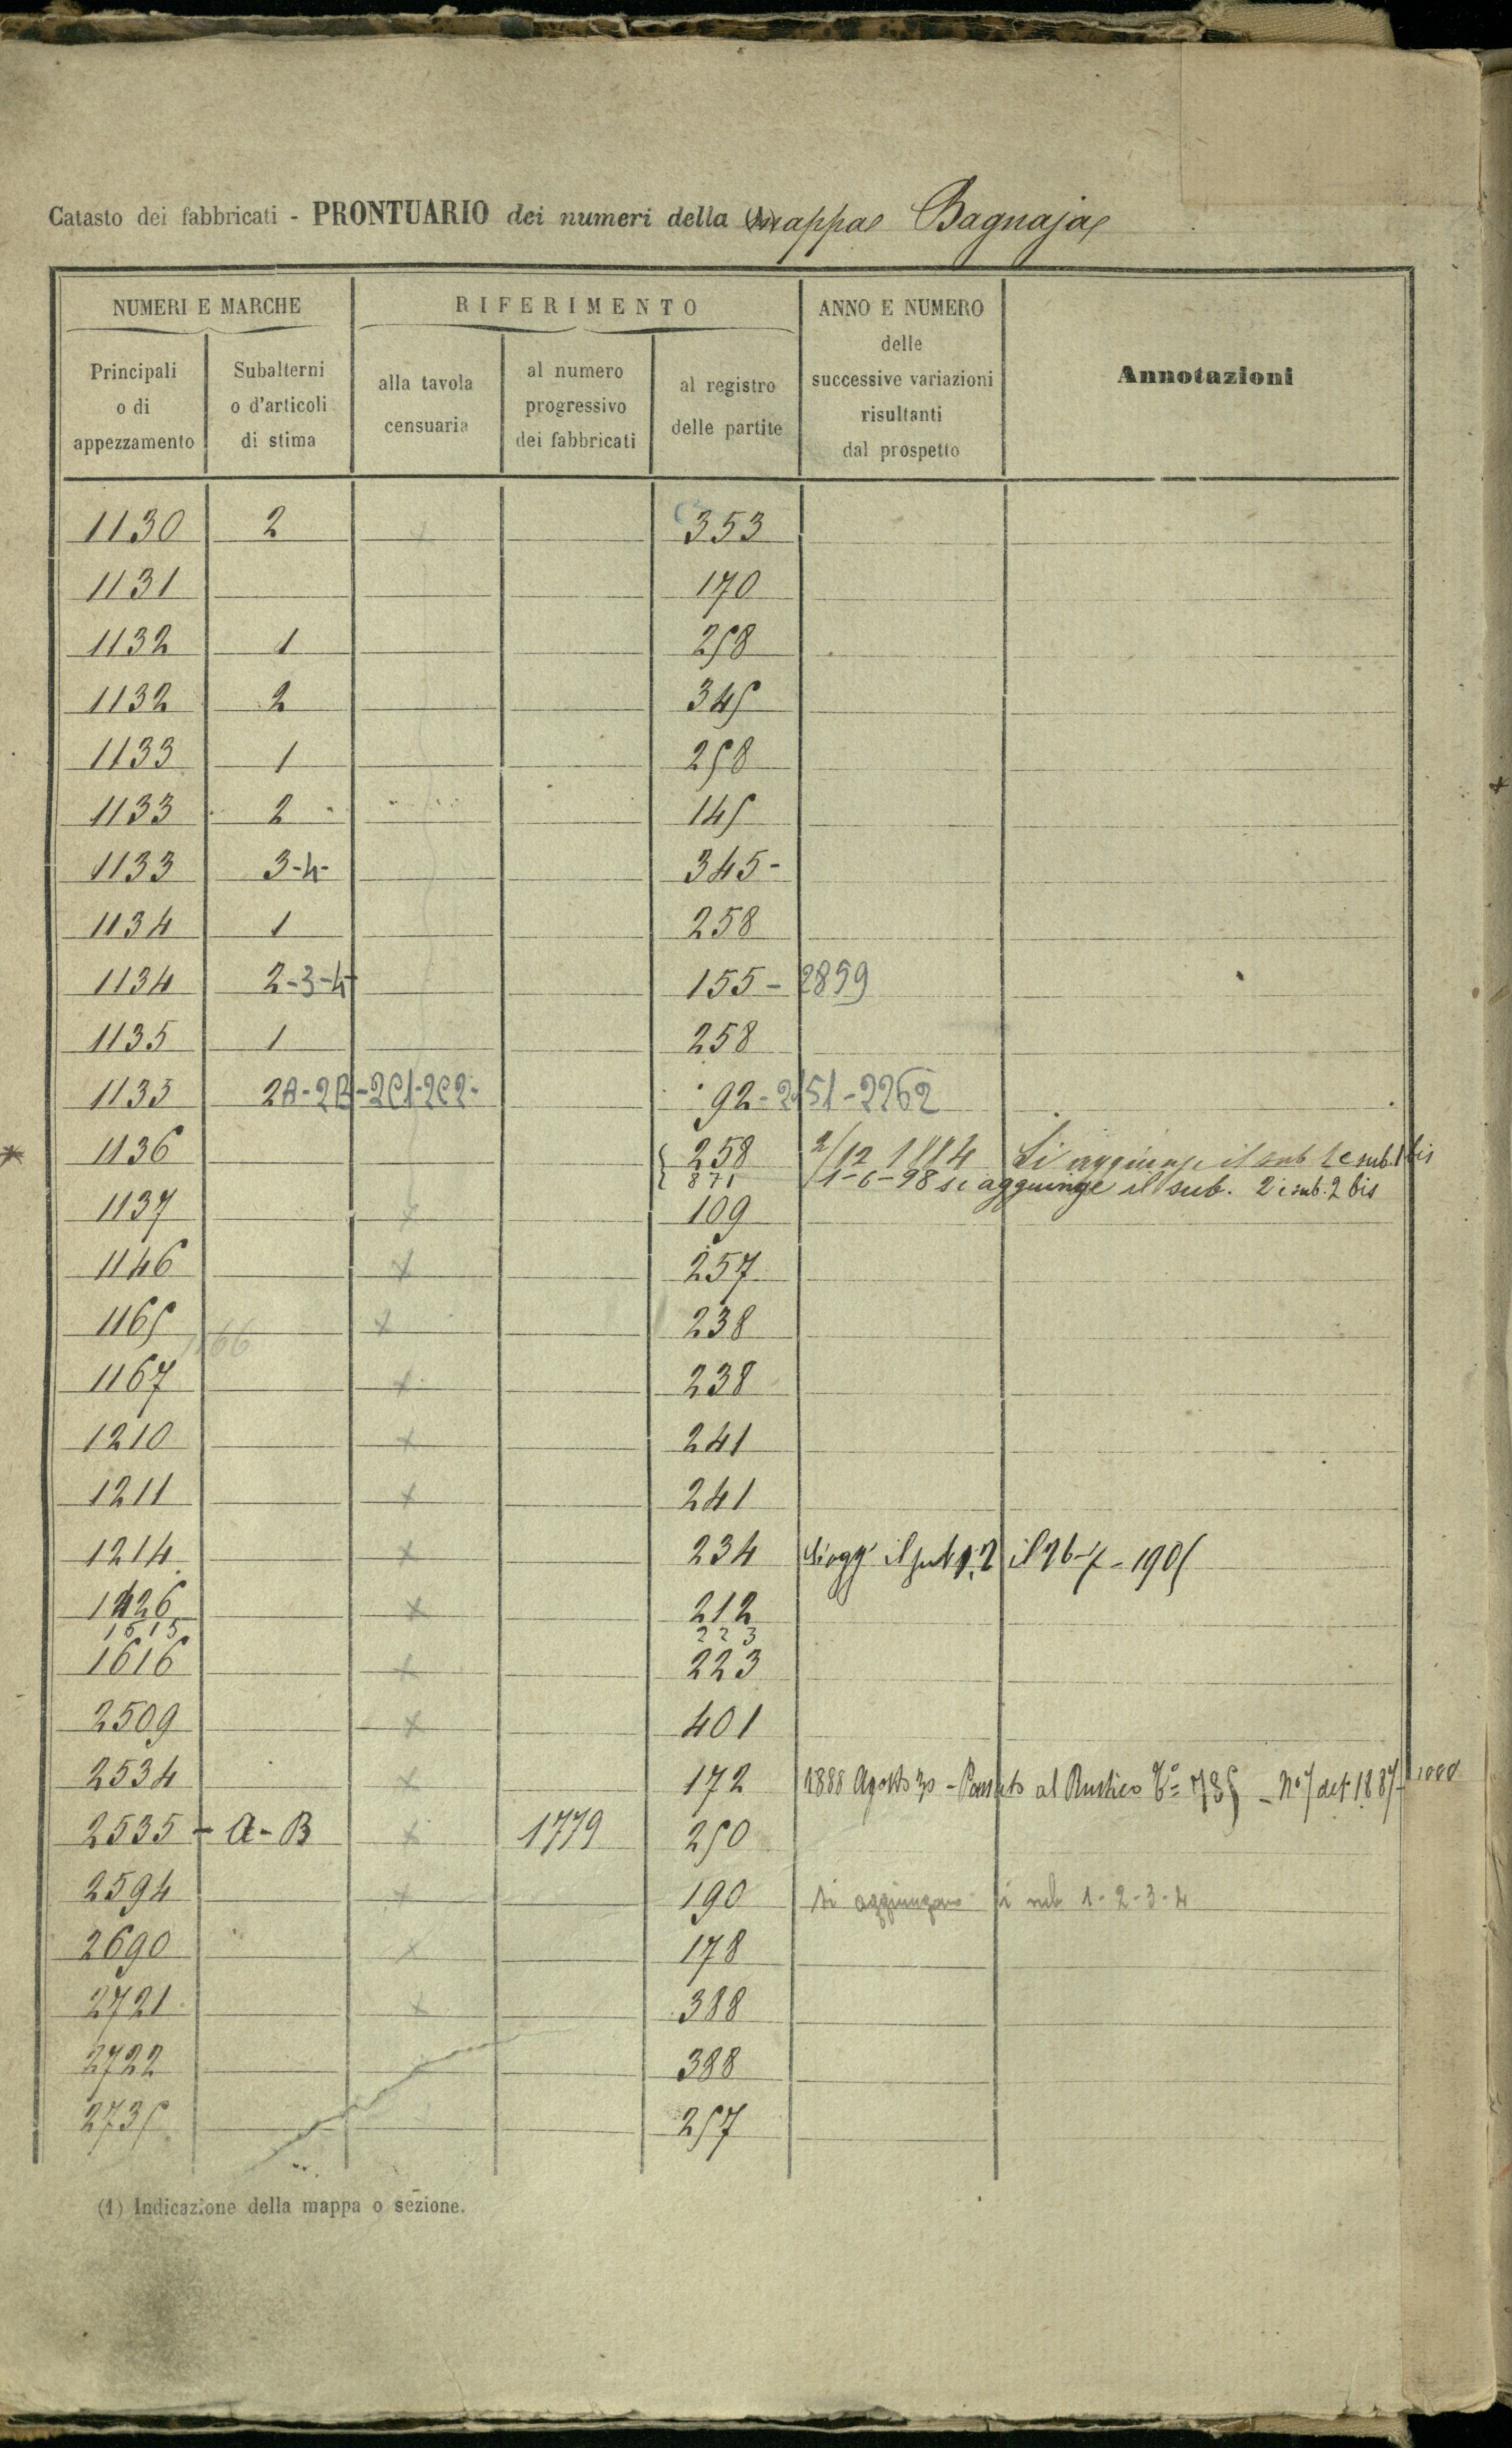 Catasto dei fabbricati - PRONTUARIO dei numeri della (1) mappa Bagnaja
NUMERI E MARCHE
RIFERIMENTO
ANNO E NUMERO delle successive variazioni risultanti dal prospetto
Annotazioni
Principali o di appezzamento
Subalterni o d'articoli di stima
alla tavola censuaria
al numero progressivo dei fabbricati
al registro delle partite
1130 2 353
1131 170
1132 1 258
1132 2 345
1133 1 258
1133 2 145
1133 3-4- 345-
1134 1 258
1134 2-3-4- 155- 2859
1135 1 258
1135 2A-2B-2C1-2C2- 92- 2151-2262
1136 258 2/12 1884 Si aggiunge il sub 1 e sub. 1 bis
871 1-6-98 si aggiunge il sub. 2 e sub. 2 bis
1137 109
1146 257
1165 238
1166
1167 238
1210 241
1211 241
1214 234 Si agg' il sub 1.2 il 26-7-1905
1426 212
1515 223
1616 223
2509 401
2534 172 1888 Agosto 30 - Passato al Rustico 735 - N° 7 del 1887-1888
2535 - A-B 1779 250
2594 190 si aggiungono i sub 1-2-3-4
2690 178
2721 388
2722 388
2735 257
(1) Indicazione della mappa o sezione.